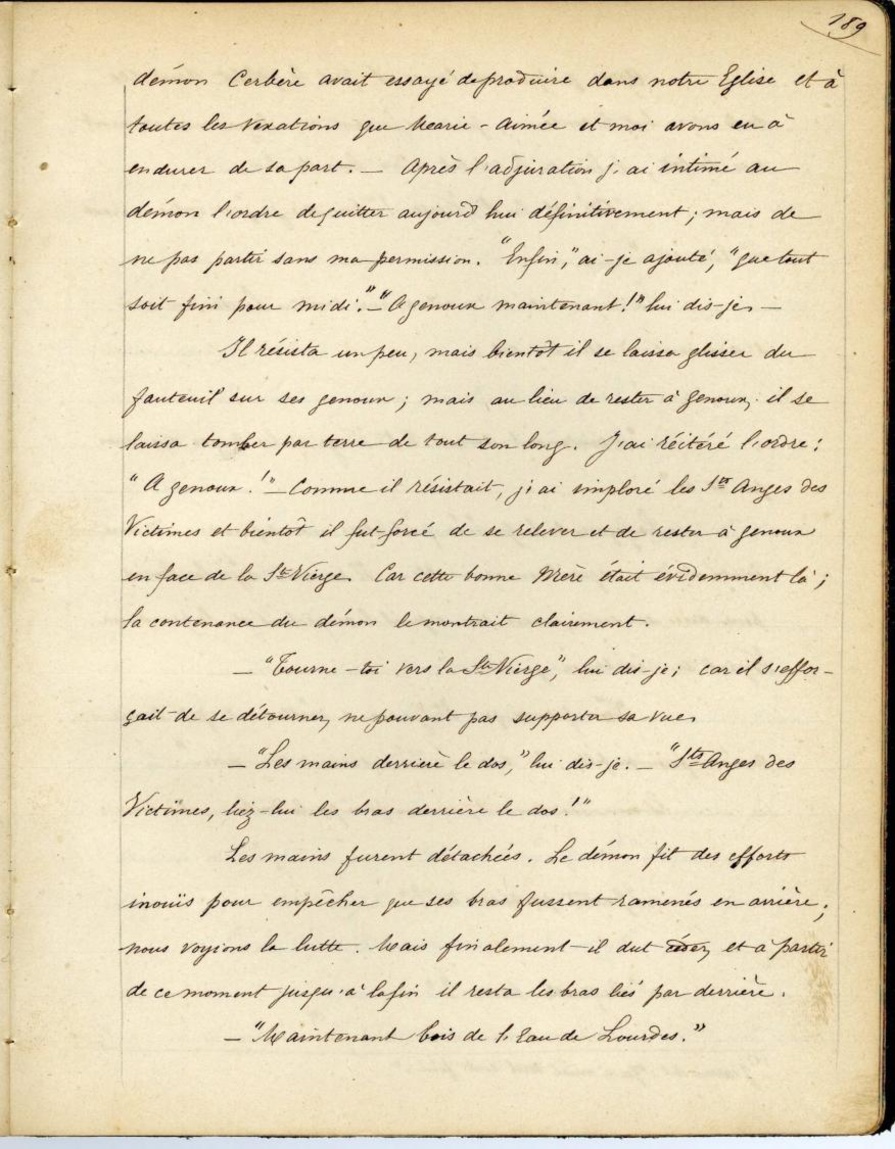 189
démon Cerbère avait essayé de produire dans notre Eglise et à
toutes les vexations que Marie-Aimée et moi avons eu à
endurer de sa part. — Après l'adjuration j'ai intimé au
démon l'ordre de quitter aujourd'hui définitivement; mais de
ne pas partir sans ma permission. "Enfin," ai-je ajouté, "que tout
soit fini pour midi". — "A genoux maintenant!" lui dis-je. —
Il résista un peu, mais bientôt il se laissa glisser du
fauteuil sur ses genoux; mais au lieu de rester à genoux, il se
laissa tomber par terre de tout son long. J'ai réitéré l'ordre:
"A genoux!" — Comme il résistait, j'ai imploré les Sts Anges des
Victimes et bientôt il fut forcé de se relever et de rester à genoux
en face de la Ste Vierge. Car cette bonne Mère était évidemment là;
la contenance du démon le montrait clairement.
— "Tourne-toi vers la Ste Vierge", lui dis-je; car il s'effor-
çait de se détourner, ne pouvant pas supporter sa vue.
— "Les mains derrière le dos," lui dis-je. — "Sts Anges des
Victimes, liez-lui les bras derrière le dos!"
Les mains furent détachées. Le démon fit des efforts
inouïs pour empêcher que ses bras fussent ramenés en arrière;
nous voyions la lutte. Mais finalement il dut céder, et à partir
de ce moment jusqu'à la fin il resta les bras liés par derrière.
— "Maintenant bois de l'Eau de Lourdes."